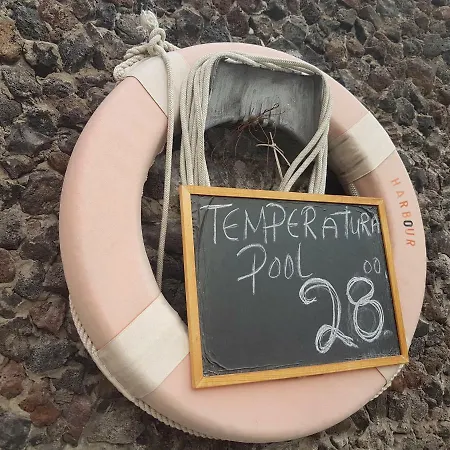 TEMPERATURA
POOL 00
28.
HARBOUR